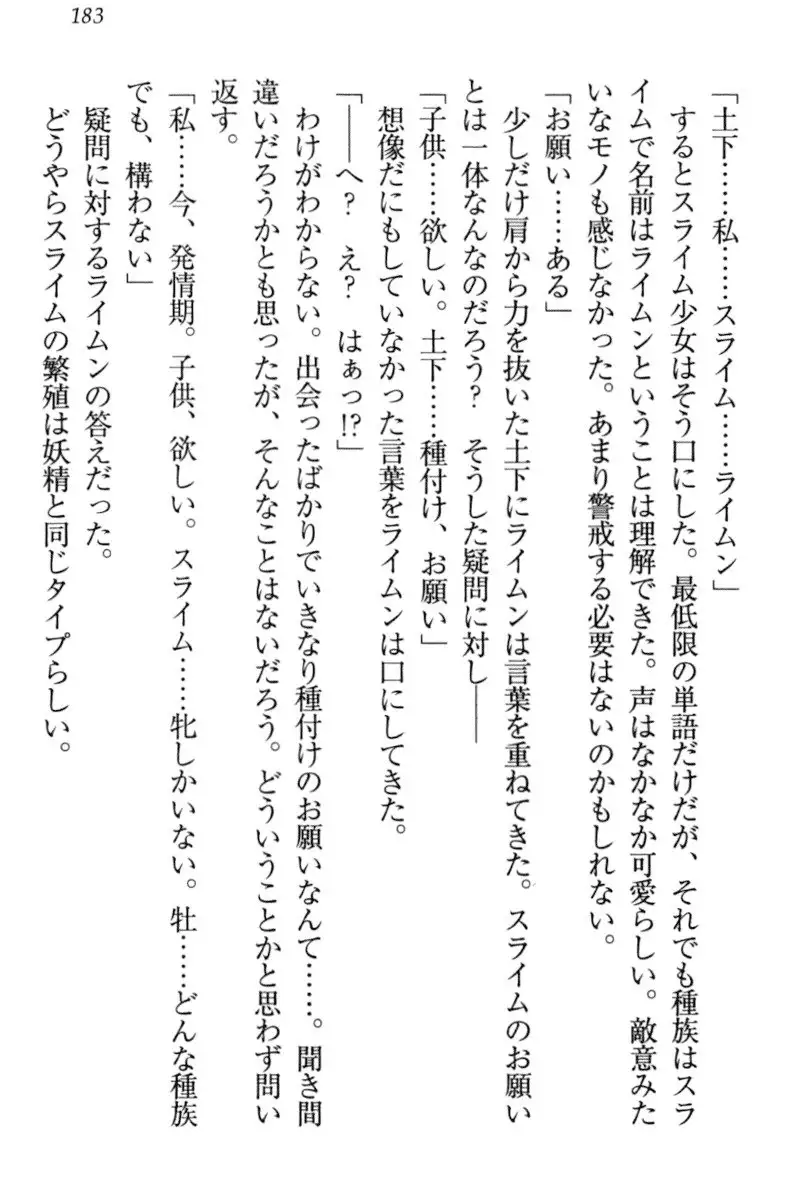 183
「土下……私……スライム……ライムン」
するとスライム少女はそう口にした。最低限の単語だけだが、それでも種族はスラ
イムで名前はライムンということは理解できた。声はなかなか可愛らしい。敵意みた
いなモノも感じなかった。あまり警戒する必要はないのかもしれない。
「お願い……ある」
少しだけ肩から力を抜いた土下にライムンは言葉を重ねてきた。スライムのお願い
とは一体なんなのだろう？　そうした疑問に対し――
「子供……欲しい。土下……種付け、お願い」
想像だにもしていなかった言葉をライムンは口にしてきた。
「――へ？　え？　はぁっ!?」
わけがわからない。出会ったばかりでいきなり種付けのお願いなんて……。聞き間
違いだろうかとも思ったが、そんなことはないだろう。どういうことかと思わず問い
返す。
「私……今、発情期。子供、欲しい。スライム……牝しかいない。牡……どんな種族
でも、構わない」
疑問に対するライムンの答えだった。
どうやらスライムの繁殖は妖精と同じタイプらしい。